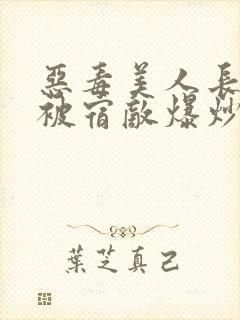 惡毒美人長
被宿敵爆炒
葉芝真己